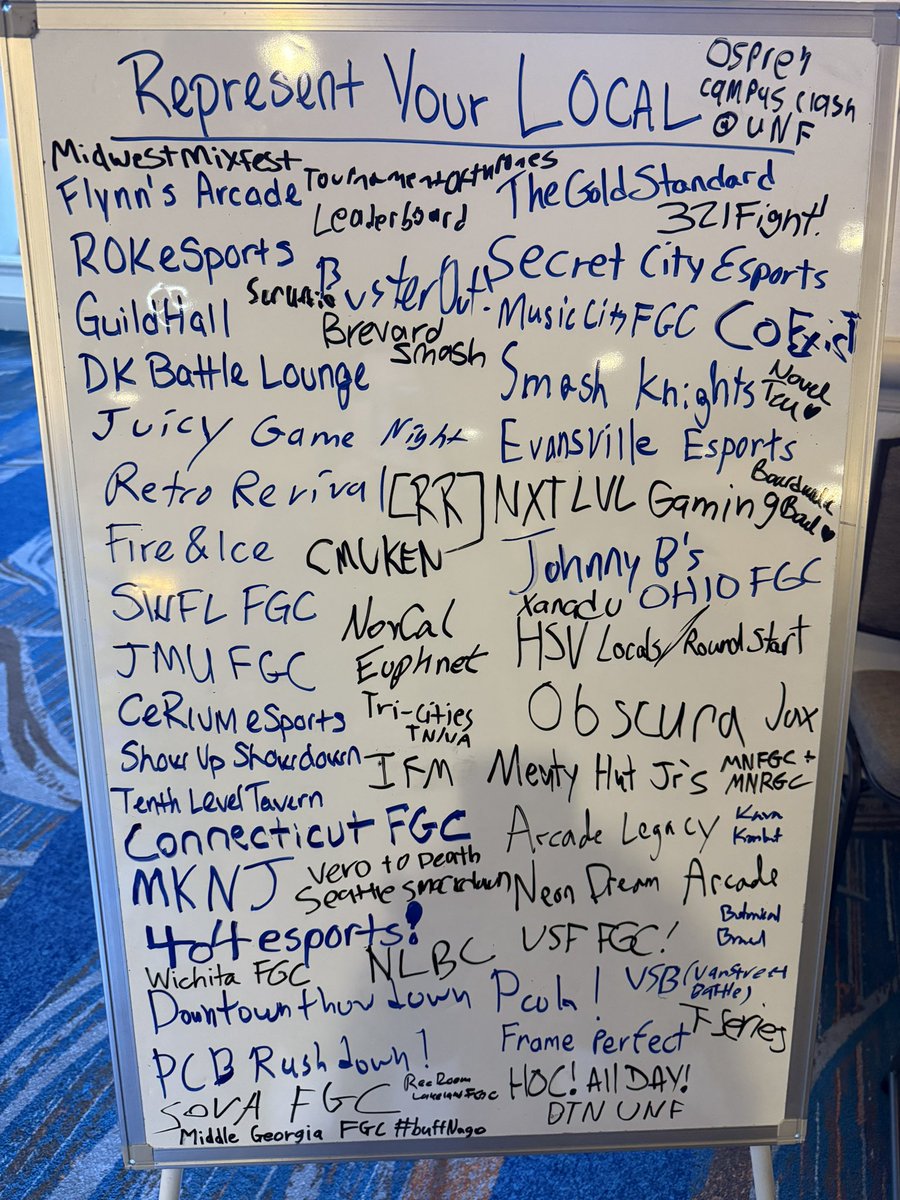 Represent Your LOCAL
Osprey
campus clash
@ UNF
Midwest Mixfest
Flynn's Arcade
Tournament of thrones
Leaderboard
The Gold Standard
321Fight!
ROKeSports
BusterOut.
Secret City Esports
GuildHall
Brevard
Smash
Music City FGC
CoExist
DK Battle Lounge
Smash Knights
Novel
Tea ♥
Juicy Game Night
Evansville Esports
Retro Revival [RR]
NXT LVL Gaming
Fire & Ice
CMUKEN
Johnny B's
SWFL FGC
NorCal
Xanadu
OHIO FGC
JMU FGC
Euphnet
HSV Locals/Round Start
CeRIUM eSports
Tri-Cities
TN/VA
Obscura Jax
Show Up Showdown
IFM
Menty Hut Jr's
MNFGC +
MNRGC
Tenth Level Tavern
Connecticut FGC
Arcade Legacy
Kava
Kombat
MKNJ
Vero to Death
Seattle Smackdown
Neon Dream Arcade
404 esports!
NLBC
USF FGC!
Wichita FGC
VSB (Vanstreet
Battle)
Downtown throwdown Pcola!
T Series
PCB Rushdown!
Frame Perfect
SOVA FGC
Rec Room
Lakeland FGC
HOC! All DAY!
DTN UNF
Middle Georgia FGC #buffNago